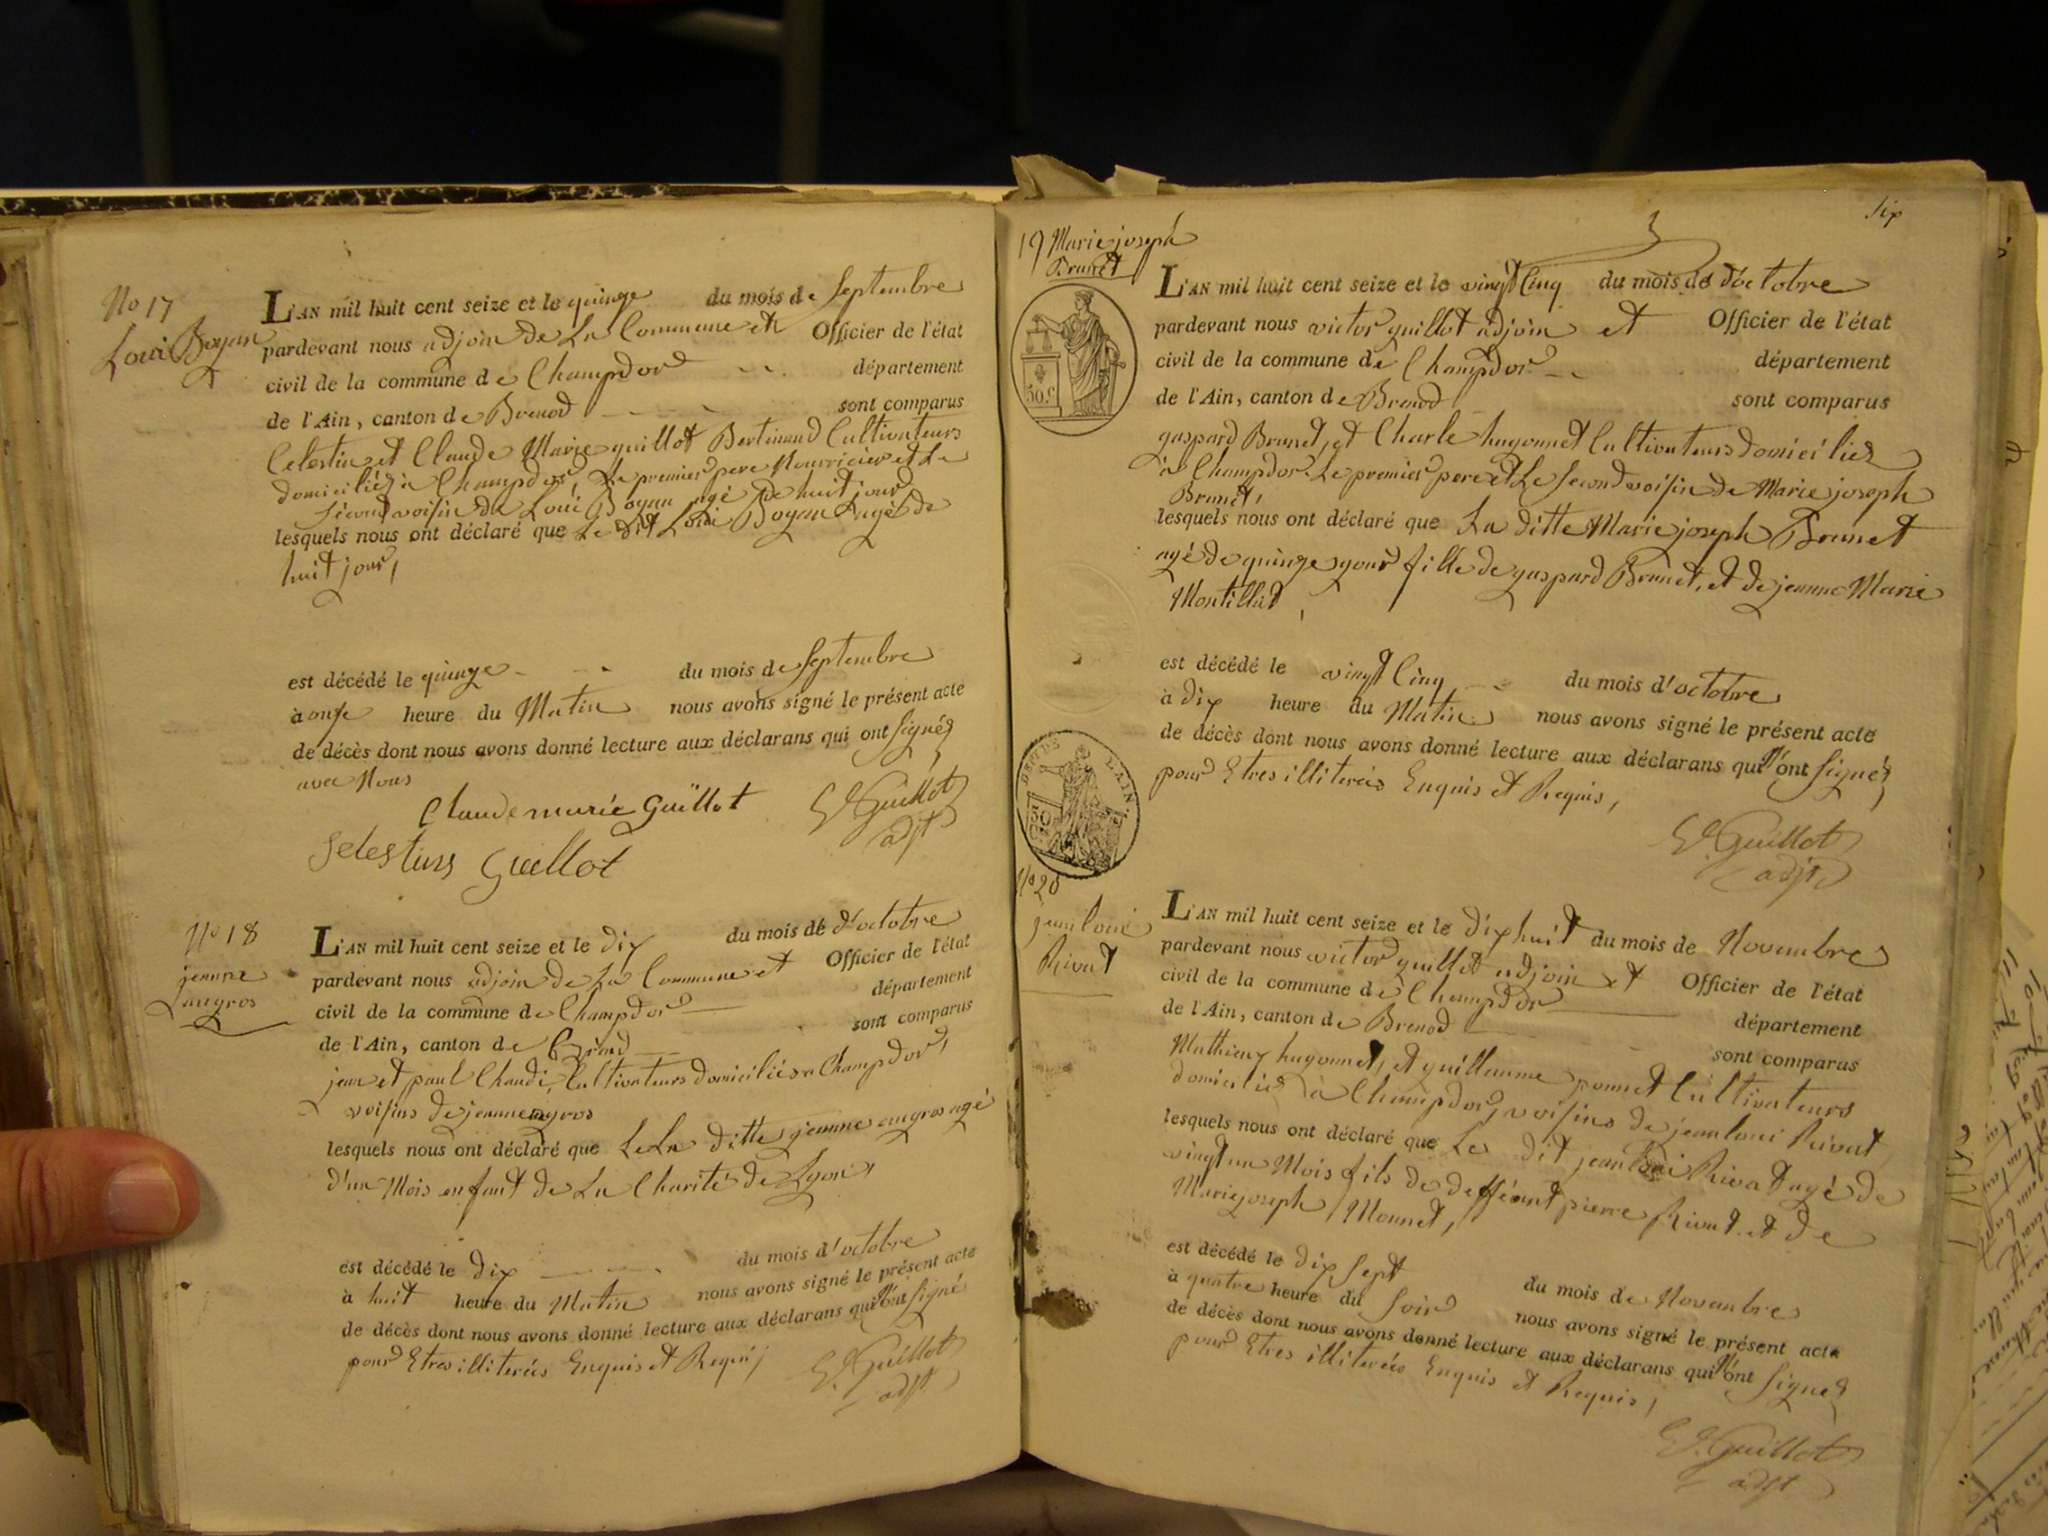 No 17
Loui Boyan
L'AN mil huit cent seize et le quinze du mois de Septembre
pardevant nous adjoin de La Commune et Officier de l'état
civil de la commune de Champdor département
de l'Ain, canton de Brenod sont comparus
Celestin et Claude Marie guillot Bertinand Cultivateurs
domiciliéz à Champdor, Le premier pere Nourricier et Le
Second voisin de Loui Boyan agé de huit jour
lesquels nous ont déclaré que Le dit Loui Boyan agé de
huit jour,
est décédé le quinze du mois de Septembre
à onze heure du Matin nous avons signé le présent acte
de décès dont nous avons donné lecture aux déclarans qui ont Signéz
avec Nous
Claude marie Guillot
Guillot
adjt
Selestins Guillot
No 18
jeanne
augros
L'AN mil huit cent seize et le dix du mois de d'octobre
pardevant nous adjoin de La Commune et Officier de l'état
civil de la commune de Champdor département
de l'Ain, canton de Brenod sont comparus
jean et paul Chaudi, Cultivateurs domiciliés a Champdor,
voisins de jeanne augros
lesquels nous ont déclaré que Le La ditte jeanne augros agé
d'un Mois enfant de La Charité de Lyon,
est décédé le dix du mois d'octobre
à huit heure du Matin nous avons signé le présent acte
de décès dont nous avons donné lecture aux déclarans qui n'ont Signé
pour Etres illiterés Enquis et Requis,
Guillot
adjt
Six
19 Marie joseph
Brunet
50.C
L'AN mil huit cent seize et le vingt Cinq du mois de d'octobre
pardevant nous victor guillot adjoin et Officier de l'état
civil de la commune de Champdor département
de l'Ain, canton de Brenod sont comparus
gaspard Brunet, et Charle hugonnet Cultivateurs domiciliez
à Champdor. Le premier pere et Le Second voisin de Marie joseph
Brunet,
lesquels nous ont déclaré que La ditte Marie joseph Brunet
agé de quinze jour fille de gaspard Brunet, et de jeanne Marie
Montillet,
est décédé le vingt Cinq du mois d'octobre
à dix heure du Matin nous avons signé le présent acte
de décès dont nous avons donné lecture aux déclarans qui n'ont Signéz
pour Etres illiterés Enquis et Requis,
Guillot
adjt
L'AIN.
50
No 20
jean loui
Rivat
L'AN mil huit cent seize et le dix huit du mois de Novembre
pardevant nous victor guillot adjoin et Officier de l'état
civil de la commune de Champdor département
de l'Ain, canton de Brenod sont comparus
Mathieux hugonnet, et guillaume ponnet Cultivateurs
domicilies à Champdor, voisins de jean loui Rivat
lesquels nous ont déclaré que Le dit jean loui Rivat agé de
vingt un Mois fils de defféunt pierre Rivat et de
Marie joseph Monnet,
est décédé le dix Sept du mois de Novembre
à quatre heure du Soir nous avons signé le présent acte
de décès dont nous avons donné lecture aux déclarans qui n'ont Signéz
pour Etres illiterés Enquis et Requis,
Guillot
adjt